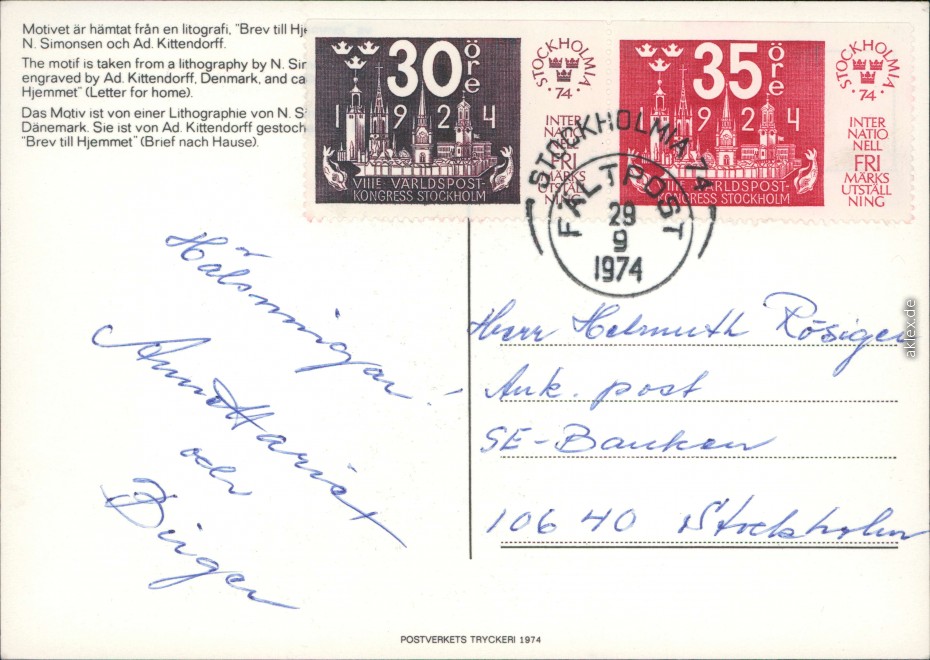 Motivet är hämtat från en litografi, "Brev till Hje
N. Simonsen och Ad. Kittendorff.
The motif is taken from a lithography by N. Sim
engraved by Ad. Kittendorff, Denmark, and ca
Hjemmet" (Letter for home).
Das Motiv ist von einer Lithographie von N. Si
Dänemark. Sie ist von Ad. Kittendorff gestoch
"Brev till Hjemmet" (Brief nach Hause).
30 öre
1924
VIIIE VÄRLDSPOST-
KONGRESS STOCKHOLM
STOCKHOLMIA
·74·
INTER
NATIO
FRI
MÄRKS
UTSTÄLL
NING
35 öre
1924
VÄRLDSPOST-
KONGRESS STOCKHOLM
STOCKHOLMIA
·74·
INTER
NATIO
NELL
FRI
MÄRKS
UTSTÄLL
NING
STOCKHOLMIA 74
FÄLTPOST
29
9
1974
Hälsningar
AnnMarie
och
Birger
Herr Helmuth Rösiger
Ank. post
SE-Banken
106 40 Stockholm
aklex.de
POSTVERKETS TRYCKERI 1974